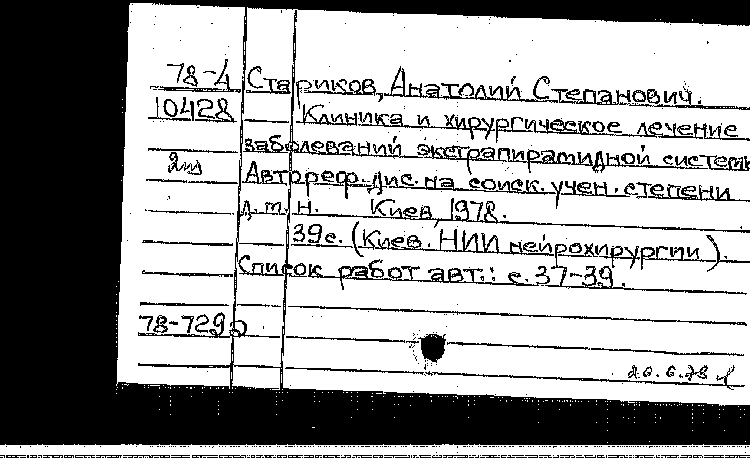 78-4 Стариков, Анатолий Степанович.
10428 Клиника и хирургическое лечение
заболеваний экстрапирамидной систем
2 Автореф. дис. на соиск. учен. степени
д. м. н. Киев, 1978.
39 с. (Киев. НИИ нейрохирургии).
Список работ авт.: с. 37-39.
78-729
20.6.78